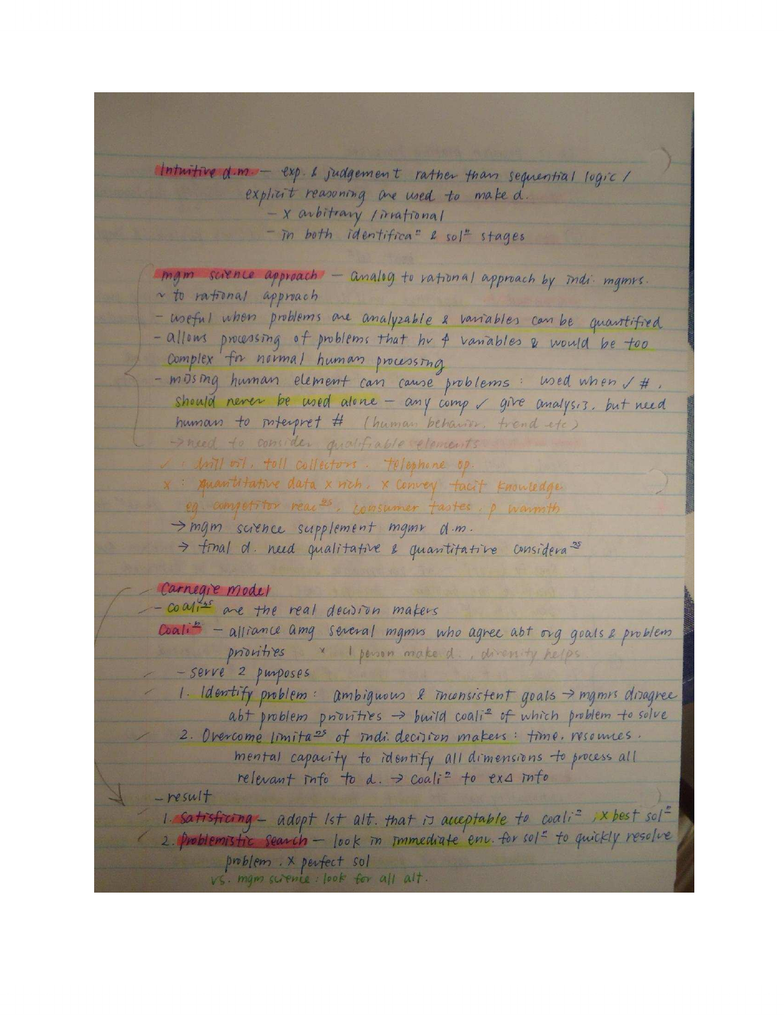 Intuitive d.m. – exp. & judgement rather than sequential logic /
explicit reasoning are used to make d.
– x arbitrary / irrational
– in both identificaⁿ & solⁿ stages
mgm science approach – analog to rational approach by indi. mgmrs.
~ to rational approach
– useful when problems are analyzable & variables can be quantified
– allows processing of problems that hv ↑ variables & would be too
complex for normal human processing
– missing human element can cause problems : used when ✓ #,
should never be used alone – any comp ✓ give analysis, but need
human to interpret # (human behavior, trend etc)
→ need to consider qualifiable elements
✓ : drill oil, toll collectors, telephone op.
x : quantitative data x rich, x convey tacit knowledge
eg. competitor reacⁿˢ, consumer tastes, p warmth
→ mgm science supplement mgmr d.m.
→ final d. need qualitative & quantitative consideraⁿˢ
Carnegie Model
– coaliⁿˢ are the real decision makers
Coaliⁿ – alliance amg several mgmrs who agree abt org goals & problem
priorities x 1 person make d., diversity helps
– serve 2 purposes
1. Identify problem : ambiguous & inconsistent goals → mgmrs disagree
abt problem priorities → build coaliⁿ of which problem to solve
2. Overcome limitaⁿˢ of indi. decision makers : time, resources,
mental capacity to identify all dimensions to process all
relevant info to d. → coaliⁿ to exΔ info
– result
1. Satisficing – adopt 1st alt. that is acceptable to coaliⁿ, x best solⁿ
2. Problemistic search – look in immediate env. for solⁿ to quickly resolve
problem. x perfect sol
vs. mgm science : look for all alt.